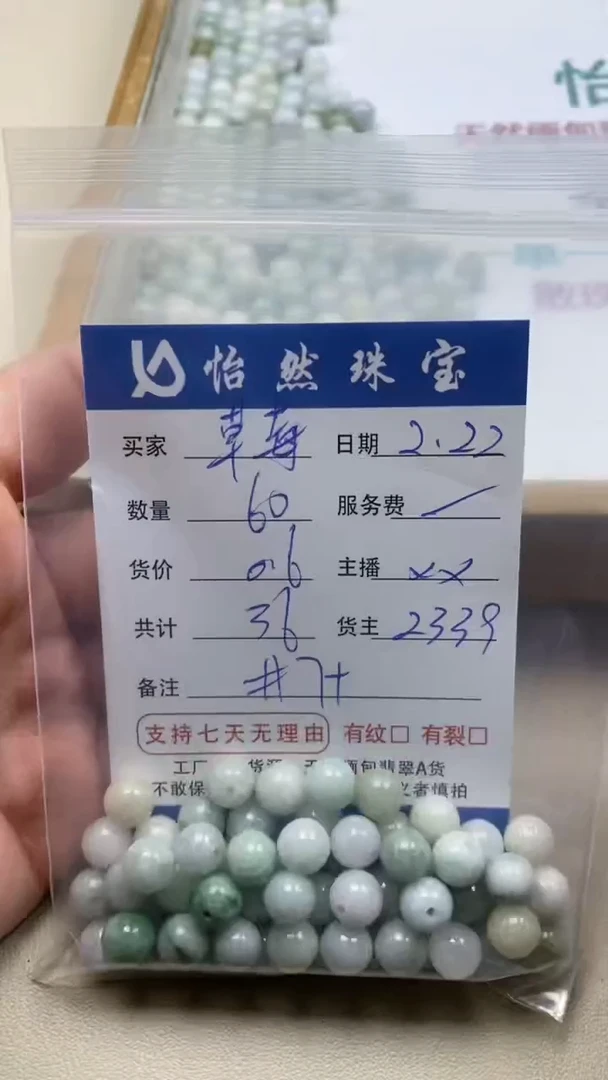 怡
天然缅甸
怡然珠宝
买家 草莓 日期 2.22
数量 60 服务费
货价 0.6 主播 xx
共计 36 货主 2339
备注 #7+
支持七天无理由 有纹□ 有裂□
工厂 货源 缅甸翡翠A货
不敢保 者慎拍